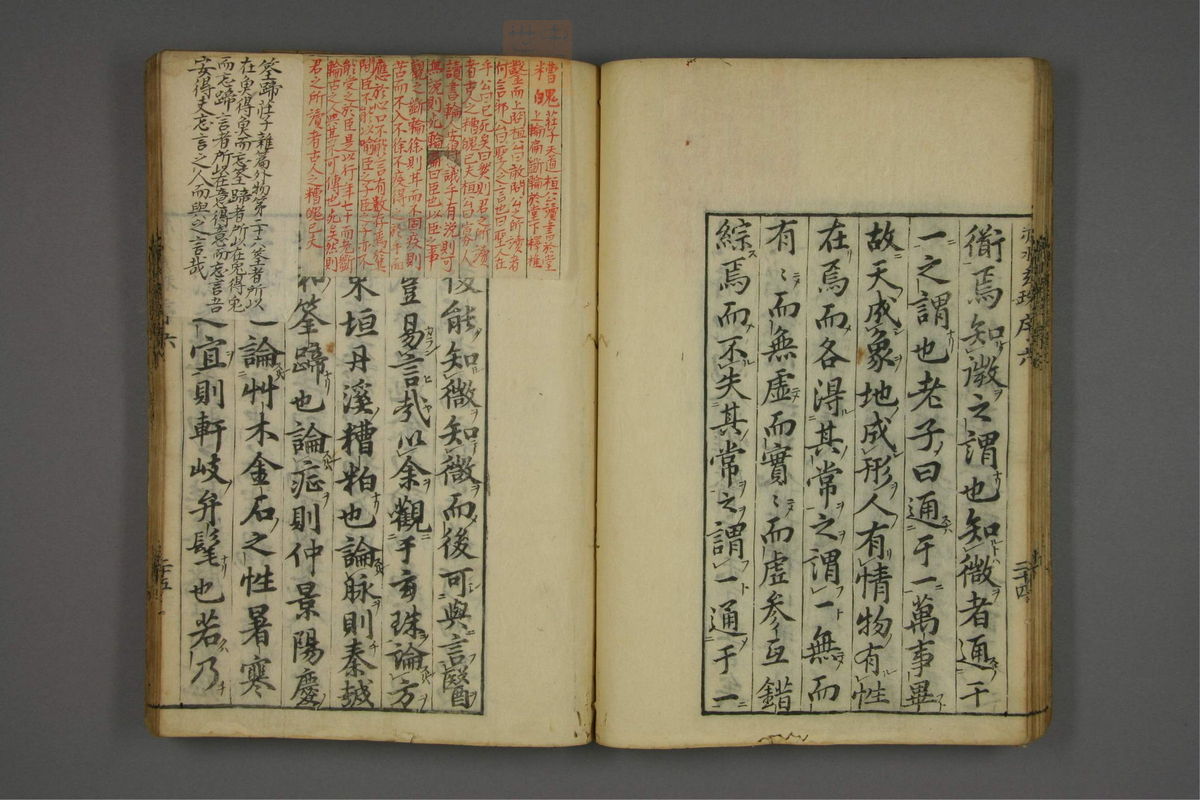 赤水玄珠序六
二十四
衜焉知微之謂也知微者通于
一之謂也老子曰通于一萬事畢
故天成象地成形人有情物有性
在焉而各得其常之謂一無而
有〻而無虛而實〻而虛參互錯
綜焉而不失其常之謂一通于一
糟魄 莊子天道桓公讀書於堂
上輪扁斲輪於堂下釋椎
鑿而上問桓公曰敢問公之所讀者
何言邪公曰聖人之言也曰聖人在
乎公曰已死矣曰然則君之所讀
者古人之糟魄已夫桓公曰寡人
讀書輪人安得議乎有説則可
無説則死輪扁曰臣也以臣之事
觀之斲輪徐則甘而不固疾則
苦而不入不徐不疾得之於手而
應於心口不能言有數存焉於其
間臣不能以喩臣之子臣之子亦不
能受之於臣是以行年七十而老斲
輪古之人與其不可傳也死矣然則
君之所讀者古人之糟魄已夫
筌蹄 莊子雜篇外物第二十六 筌者所以
在魚得魚而忘筌蹄者所以在兔得兔
而忘蹄言者所以在意得意而忘言吾
安得夫忘言之人而與之言哉
後能知微知微而後可與言醫
豈易言哉以余觀于玄珠論方
朱垣丹溪糟粕也論脉則秦越
和筌蹄也論症則仲景陽慶
論艸木金石之性暑寒
宜則軒岐弁髦也若乃
六
二十五